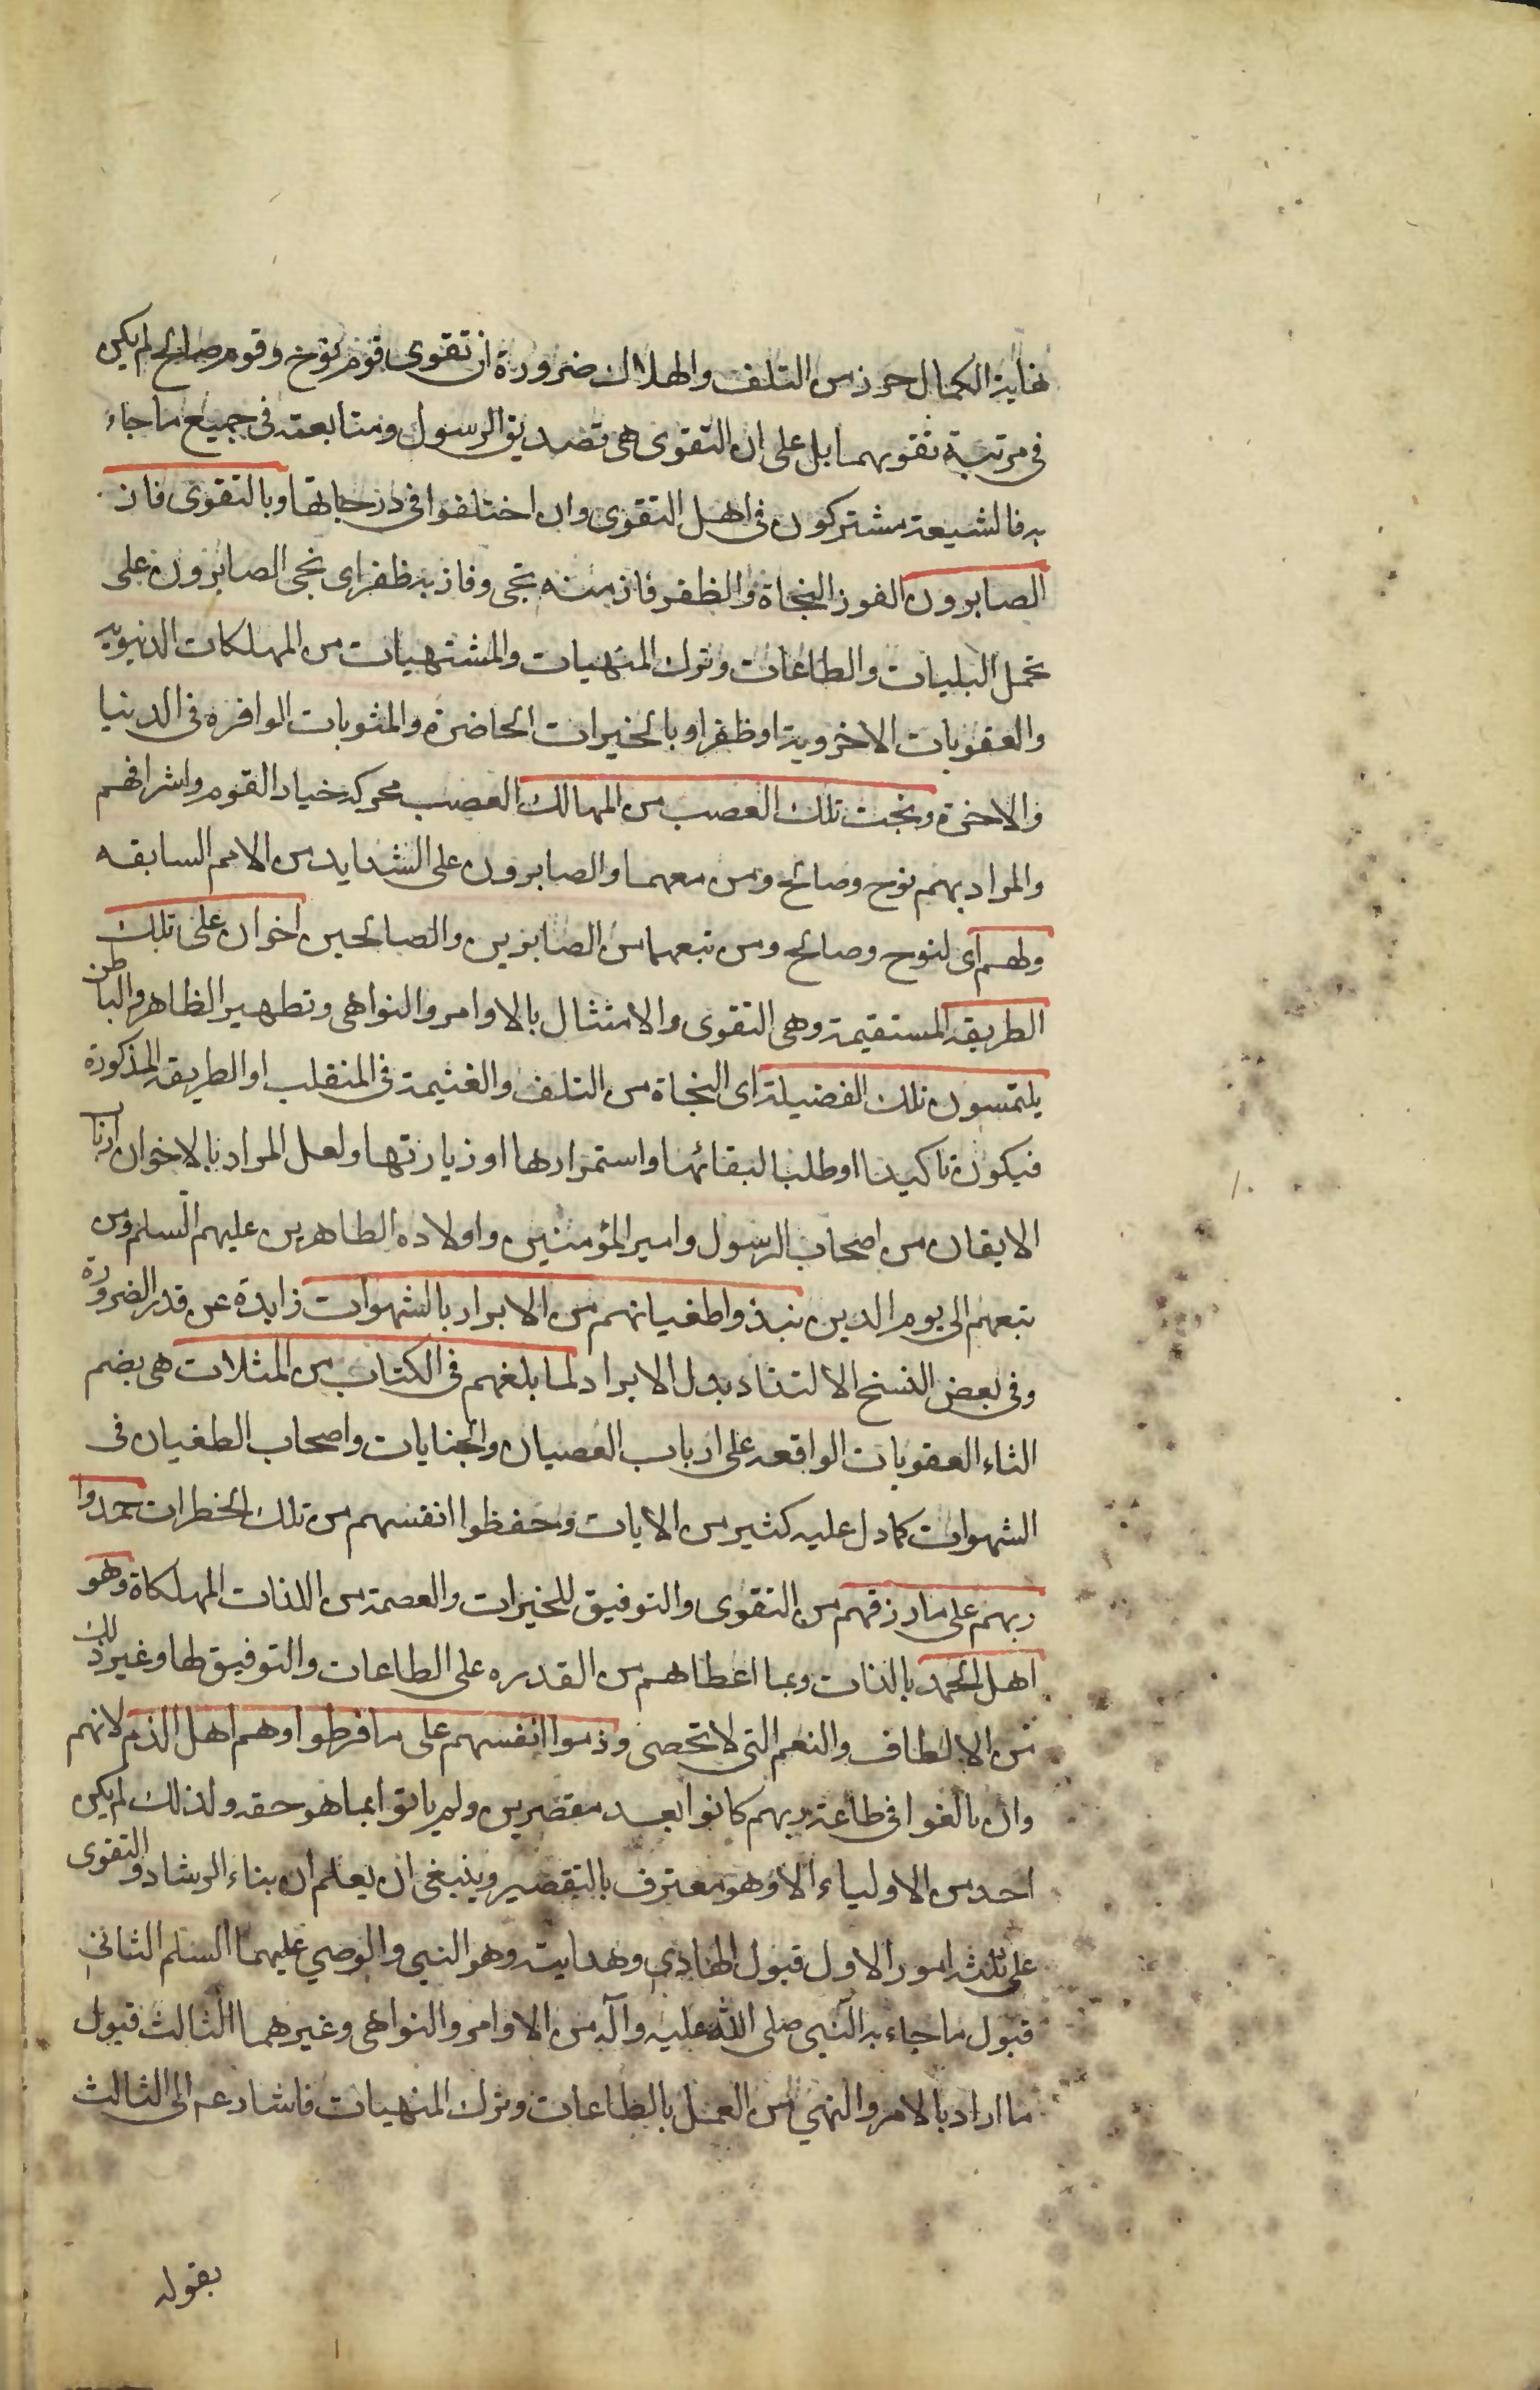 نهاية الكمال حرز من التلف والهلاك ضرورة ان تقوى قوم نوح وقوم صالح لم يكن
فى مرتبة تقويهما بل على ان التقوى هى تصديق الرسول ومتابعته فى جميع ما جاء
به فالشيعة مشتركون فى اهل التقوى وان اختلفوا فى درجاتها وبالتقوى فاز
الصابرون الفوز النجاة والظفر فاز منه نجى وفاز به ظفر اى نجى الصابرون على
تحمل البليات والطاعات وترك المنهيات والمشتهيات من المهلكات الدنيويه
والعقوبات الاخروية او ظفراو بالخيرات الحاضرة والمثوبات الوافره فى الدنيا
والاخرة ونجت تلك العصب من المهالك العصب محركه خيار القوم واشرافهم
والمراد بهم نوح وصالح ومن معهما والصابرون على الشدايد من الامم السابقه
ولهم اى لنوح وصالح ومن تبعهما من الصابرين والصالحين اخوان على تلك
الطريقة المستقيمة وهى التقوى والامتثال بالاوامر والنواهى وتطهير الظاهر والباطن
يلتمسون تلك الفضيلة اى النجاة من التلف والغنيمة فى المنقلب او الطريقة المذكورة
فيكون تاكيدا او طلبا لبقائها واستمرارها او زيارتها ولعل المراد بالاخوان ارباب
الايقان من اصحاب الرسول وامير المؤمنين واولاده الطاهرين عليهم السلم ومن
تبعهم الى يوم الدين نبذوا طغيانهم من الابراد بالشهوات زايدة عن قدر الضرورة
وفى بعض النسخ الالتذاذ بدل الابراد لما بلغهم فى الكتاب من المثلات هى بضم
الثاء العقوبات الواقعه على ارباب العصيان والجنايات واصحاب الطغيان فى
الشهوات كما دل عليه كثير من الايات وحفظوا انفسهم من تلك الخطرات حمدوا
ربهم على ما رزقهم من التقوى والتوفيق للخيرات والعصمة من اللذات المهلكاة وهو
اهل الحمد بالذات وبما اعطاهم من القدره على الطاعات والتوفيق لها وغير ذلك
من الالطاف والنعم التى لا تحصى وذموا انفسهم على ما فرطوا وهم اهل الذم لانهم
وان بالغوا فى طاعة ربهم كانوا بعد مقصرين ولم ياتوا بما هو حقه ولذلك لم يكن
احد من الاولياء الا وهو معترف بالتقصير وينبغى ان يعلم ان بناء الرشاد والتقوى
على ثلثة امور الاول قبول الهادي وهدايته وهو النبي والوصي عليهما السلم الثاني
قبول ما جاء به النبي صلى الله عليه وآله من الاوامر والنواهى وغيرهما الثالث قبول
ما اراد بالامر والنهي من العمل بالطاعات وترك المنهيات فاشار عم الى الثالث
بقوله